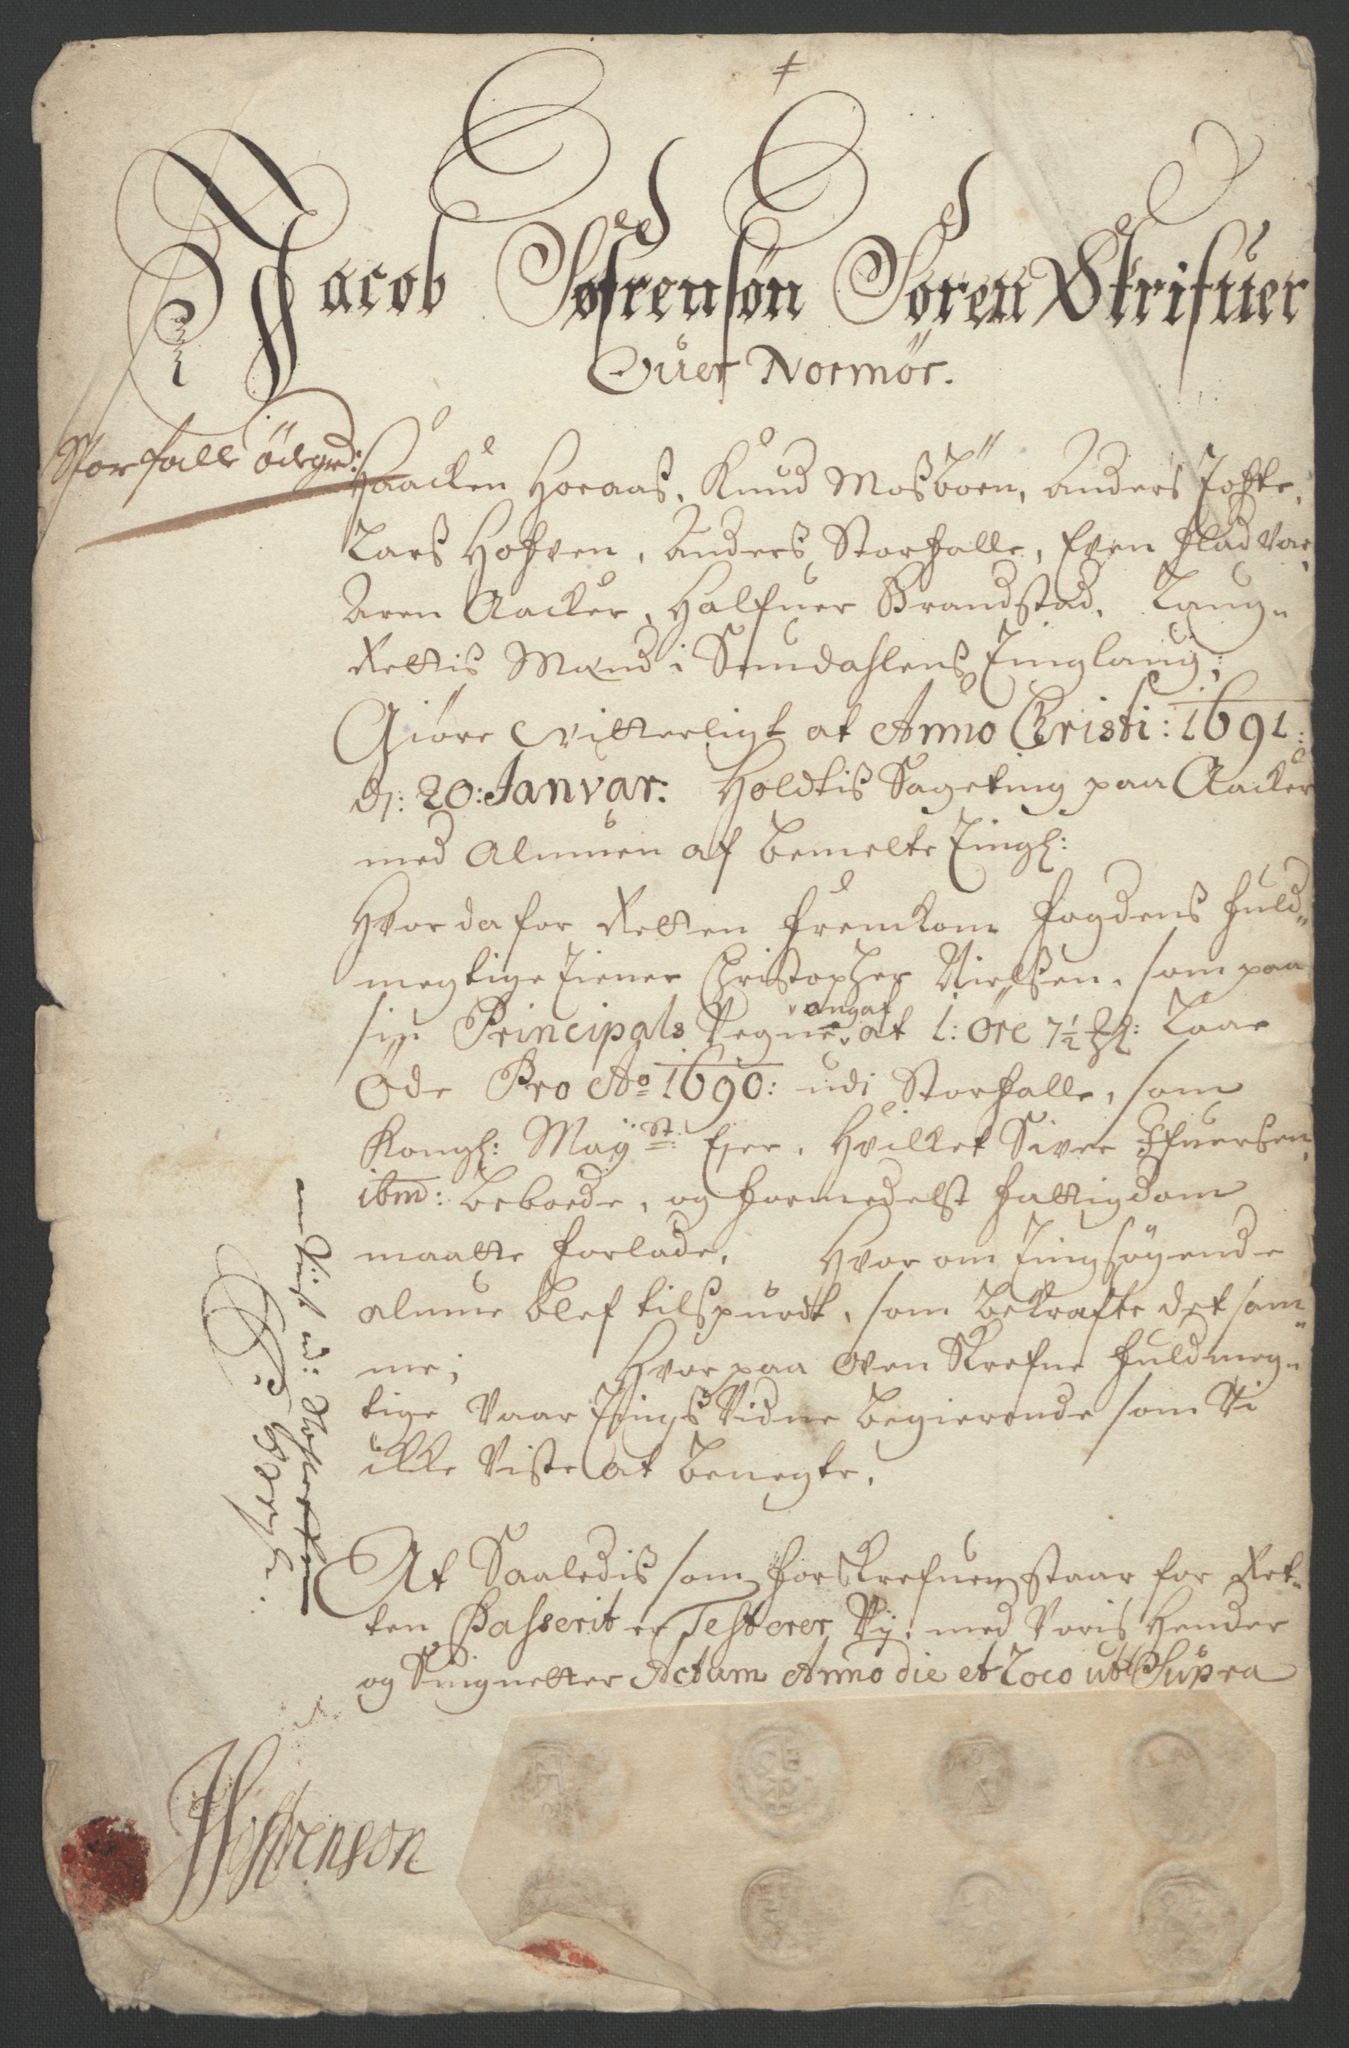 Jacob Søfrensøn Soren Skrifuer
Ouer Normör.
Storfalle ödegrd:
Haacken Horaas, Knud Mosbörn, Anders Joffte,
Lars Hoffven, Anders Storfalle, Even Fladvar,
Aren Aacker, Halfuer Brandstad, Laug„
Rettis Mænd i Sundahlens Tinglaug;
Giöre vitterligt at Anno Christi: 1691:
dj: 20: Janvar: Holdtis Sageting paa Aacker
med Almuen af bemelte Tingl:
Hvor da for Retten fremkom fogdens fuld„
megtige Tiener Christopher Nielsen, som paa
sin Principals Vegne angaf at 1: Öre 7½ ℔: Laae
Öde Pro Ao 1690: udi Storfalle, som
Kongl: Mayst: Ejer, Hvilket Siver Ifuersen
ibm: beboede, og formedelst fattigdom
maatte forlade, Hvor om Tingsøgende
almue blef tilspurdt, som bekrafte det sam„
me; Hvor paa oven Skrefne fuldmeg„
tige Vaar Tings Vidne begierende som Vi
ikke Viste at benegte.
At Saaledis som forskrefuen staar for Ret„
ten Passerit er Testerer Vij med Voris Hender
og Singnetter Actum Anno die et Loco ut Supra
JSöfrensøn